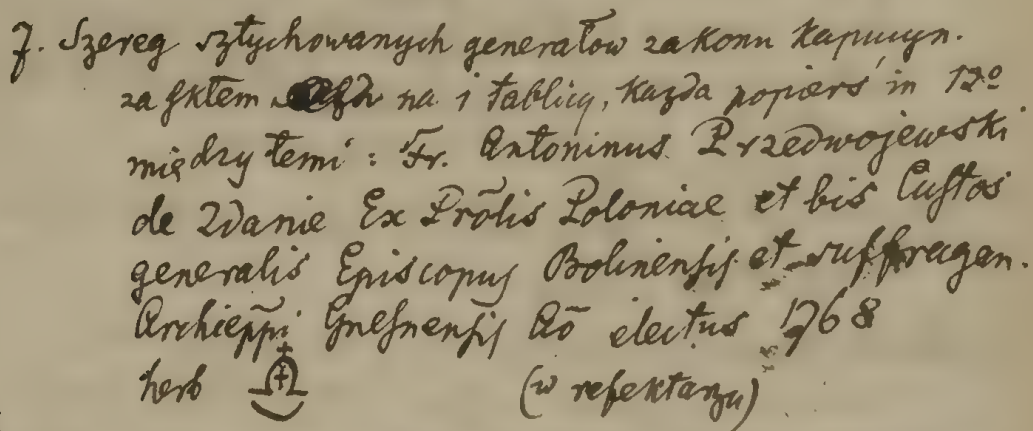 7. Szereg sztychowanych generałow zakonu kapucyn.
za szkłem na 1 tablicy, każda popierś in 12º
między temi : Fr. Antoninus Przedwojewski
de Zdanie Ex Prõlis Poloniae et bis Cuſtos
generalis Episcopus Bolinenſis et suffragan.
Archiepp̃i Gneſnenſis Aõ electus 1768
herb (w refektarzu)